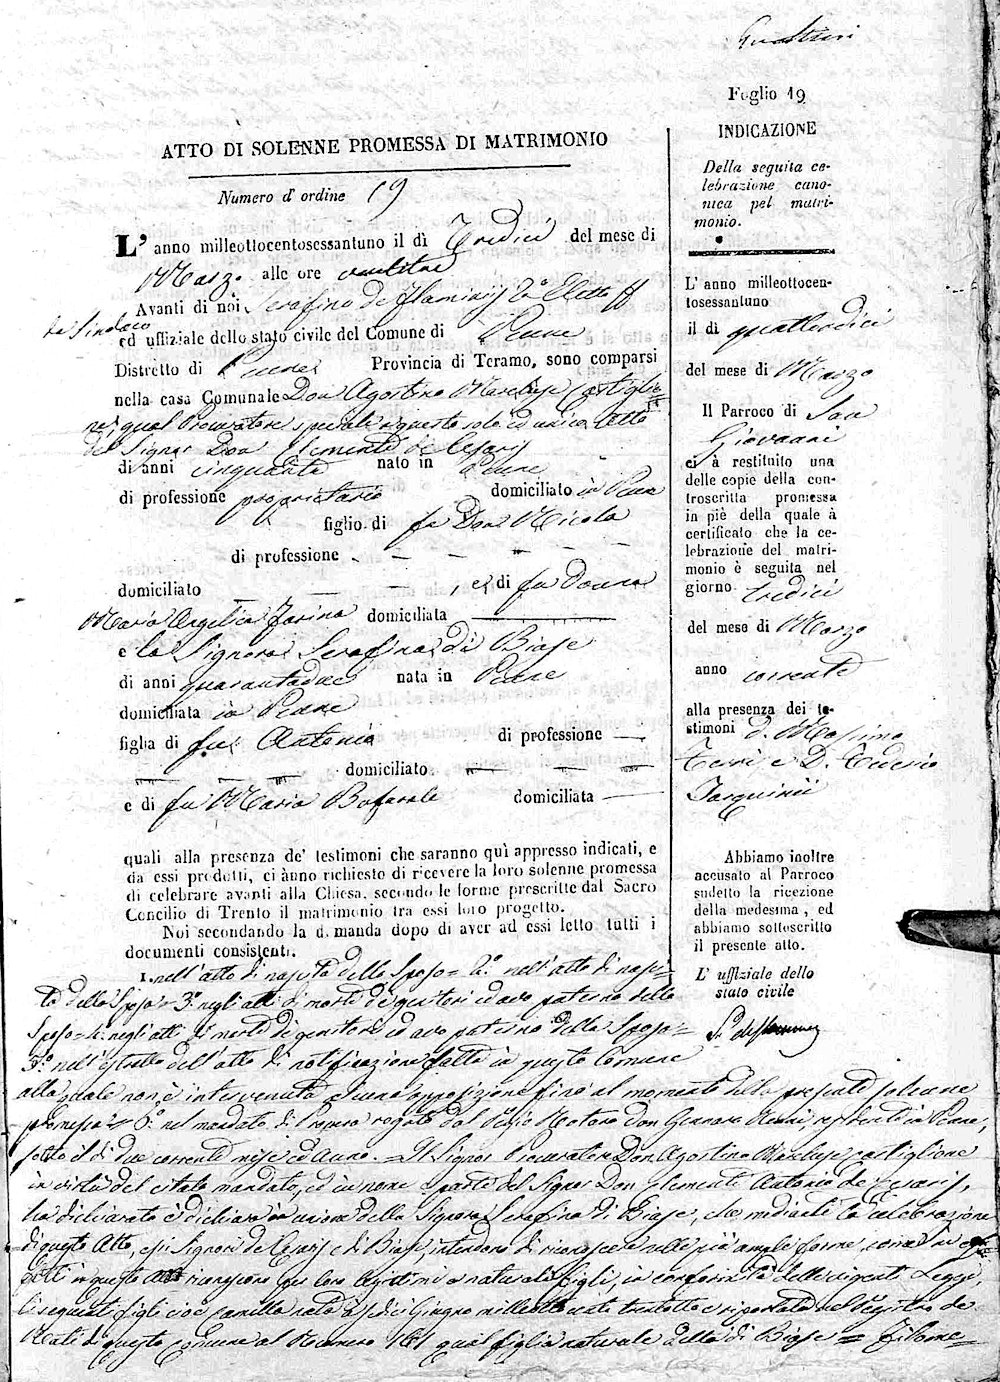 Foglio 19
ATTO DI SOLENNE PROMESSA DI MATRIMONIO
Numero d'ordine 19
L' anno milleottocentosessantuno il dì Tredici del mese di
Marzo alle ore ventitre
Avanti di noi Serafino de Flaminiis 2° Eletto ff
da Sindaco
ed uffiziale dello stato civile del Comune di Penne
Distretto di Penne Provincia di Teramo, sono comparsi
nella casa Comunale Don Agostino Marchese Castiglio
ne, qual Procuratore speciale a questo solo ed unico atto
del Signor Don Clemente de Cesaris
di anni cinquanta nato in Penne
di professione proprietario domiciliato in Penne
figlio di fu Don Nicola
di professione
domiciliato , e di fu Donna
Maria Angelica Farina domiciliata
e la Signora Serafina di Biase
di anni quarantadue nata in Penne
domiciliata in Penne
figlia di fu Antonio di professione
domiciliato
e di fu Maria Bufarale domiciliata
quali alla presenza de' testimoni che saranno quì appresso indicati, e
da essi prodotti, ci ànno richiesto di ricevere la loro solenne promessa
di celebrare avanti alla Chiesa, secondo le forme prescritte dal Sacro
Concilio di Trento il matrimonio tra essi loro progetto.
Noi secondando la dimanda dopo di aver ad essi letto tutti i
documenti consistenti.
1. nell'atto di nascita dello Sposo = 2° nell'atto di nasci-
ta della Sposa = 3° negli atti di morte di genitori ed avo paterno dello
Sposo = 4° negli atti di morte di genitori ed avo paterno della Sposa =
5° nell'estratto dell'atto di notificazione fatta in questo Comune
alla quale non è intervenuta alcuna opposizione fino al momento della presente solenne
promessa = 6° nel mandato di Procura rogato dal Regio Notaro Don Gennaro residente in Penne,
sotto il dì due corrente mese ed anno. = Il Signor Procuratore Don Agostino Marchese Castiglione
in virtù del citato mandato, ed in nome e parte del Signor Don Clemente Antonio de Cesaris,
ha dichiarato e dichiara in unione della Signora Serafina di Biase, che mediante la celebrazione
di questo Atto, essi Signori de Cesaris e di Biase, intendono di riconoscere nelle più ampie forme, come in
in questo Atto riconoscono per loro legittimi e naturali figli, in conformità delle vigenti Leggi,
li seguenti figli cioè Camilla nata a sedici Giugno milleottocento trentotto e riportata nel Registro de
Nati di questo Comune al Numero 161 qual figlia naturale della di Biase = Filome=
INDICAZIONE
Della seguita ce-
lebrazione cano-
nica pel matri-
monio.
L' anno milleottocen-
tosessantuno
il dì quattordici
del mese di Marzo
Il Parroco di San
Giovanni
ci à restituito una
delle copie della con-
troscritta promessa
in piè della quale à
certificato che la ce-
lebrazione del matri-
monio è seguita nel
giorno tredici
del mese di Marzo
anno corrente
alla presenza dei te-
stimoni D. Massimo
Terri e D. Federico
Tarquinii
Abbiamo inoltre
accusato al Parroco
sudetto la ricezione
della medesima, ed
abbiamo sottoscritto
il presente atto.
L' uffiziale dello
stato civile